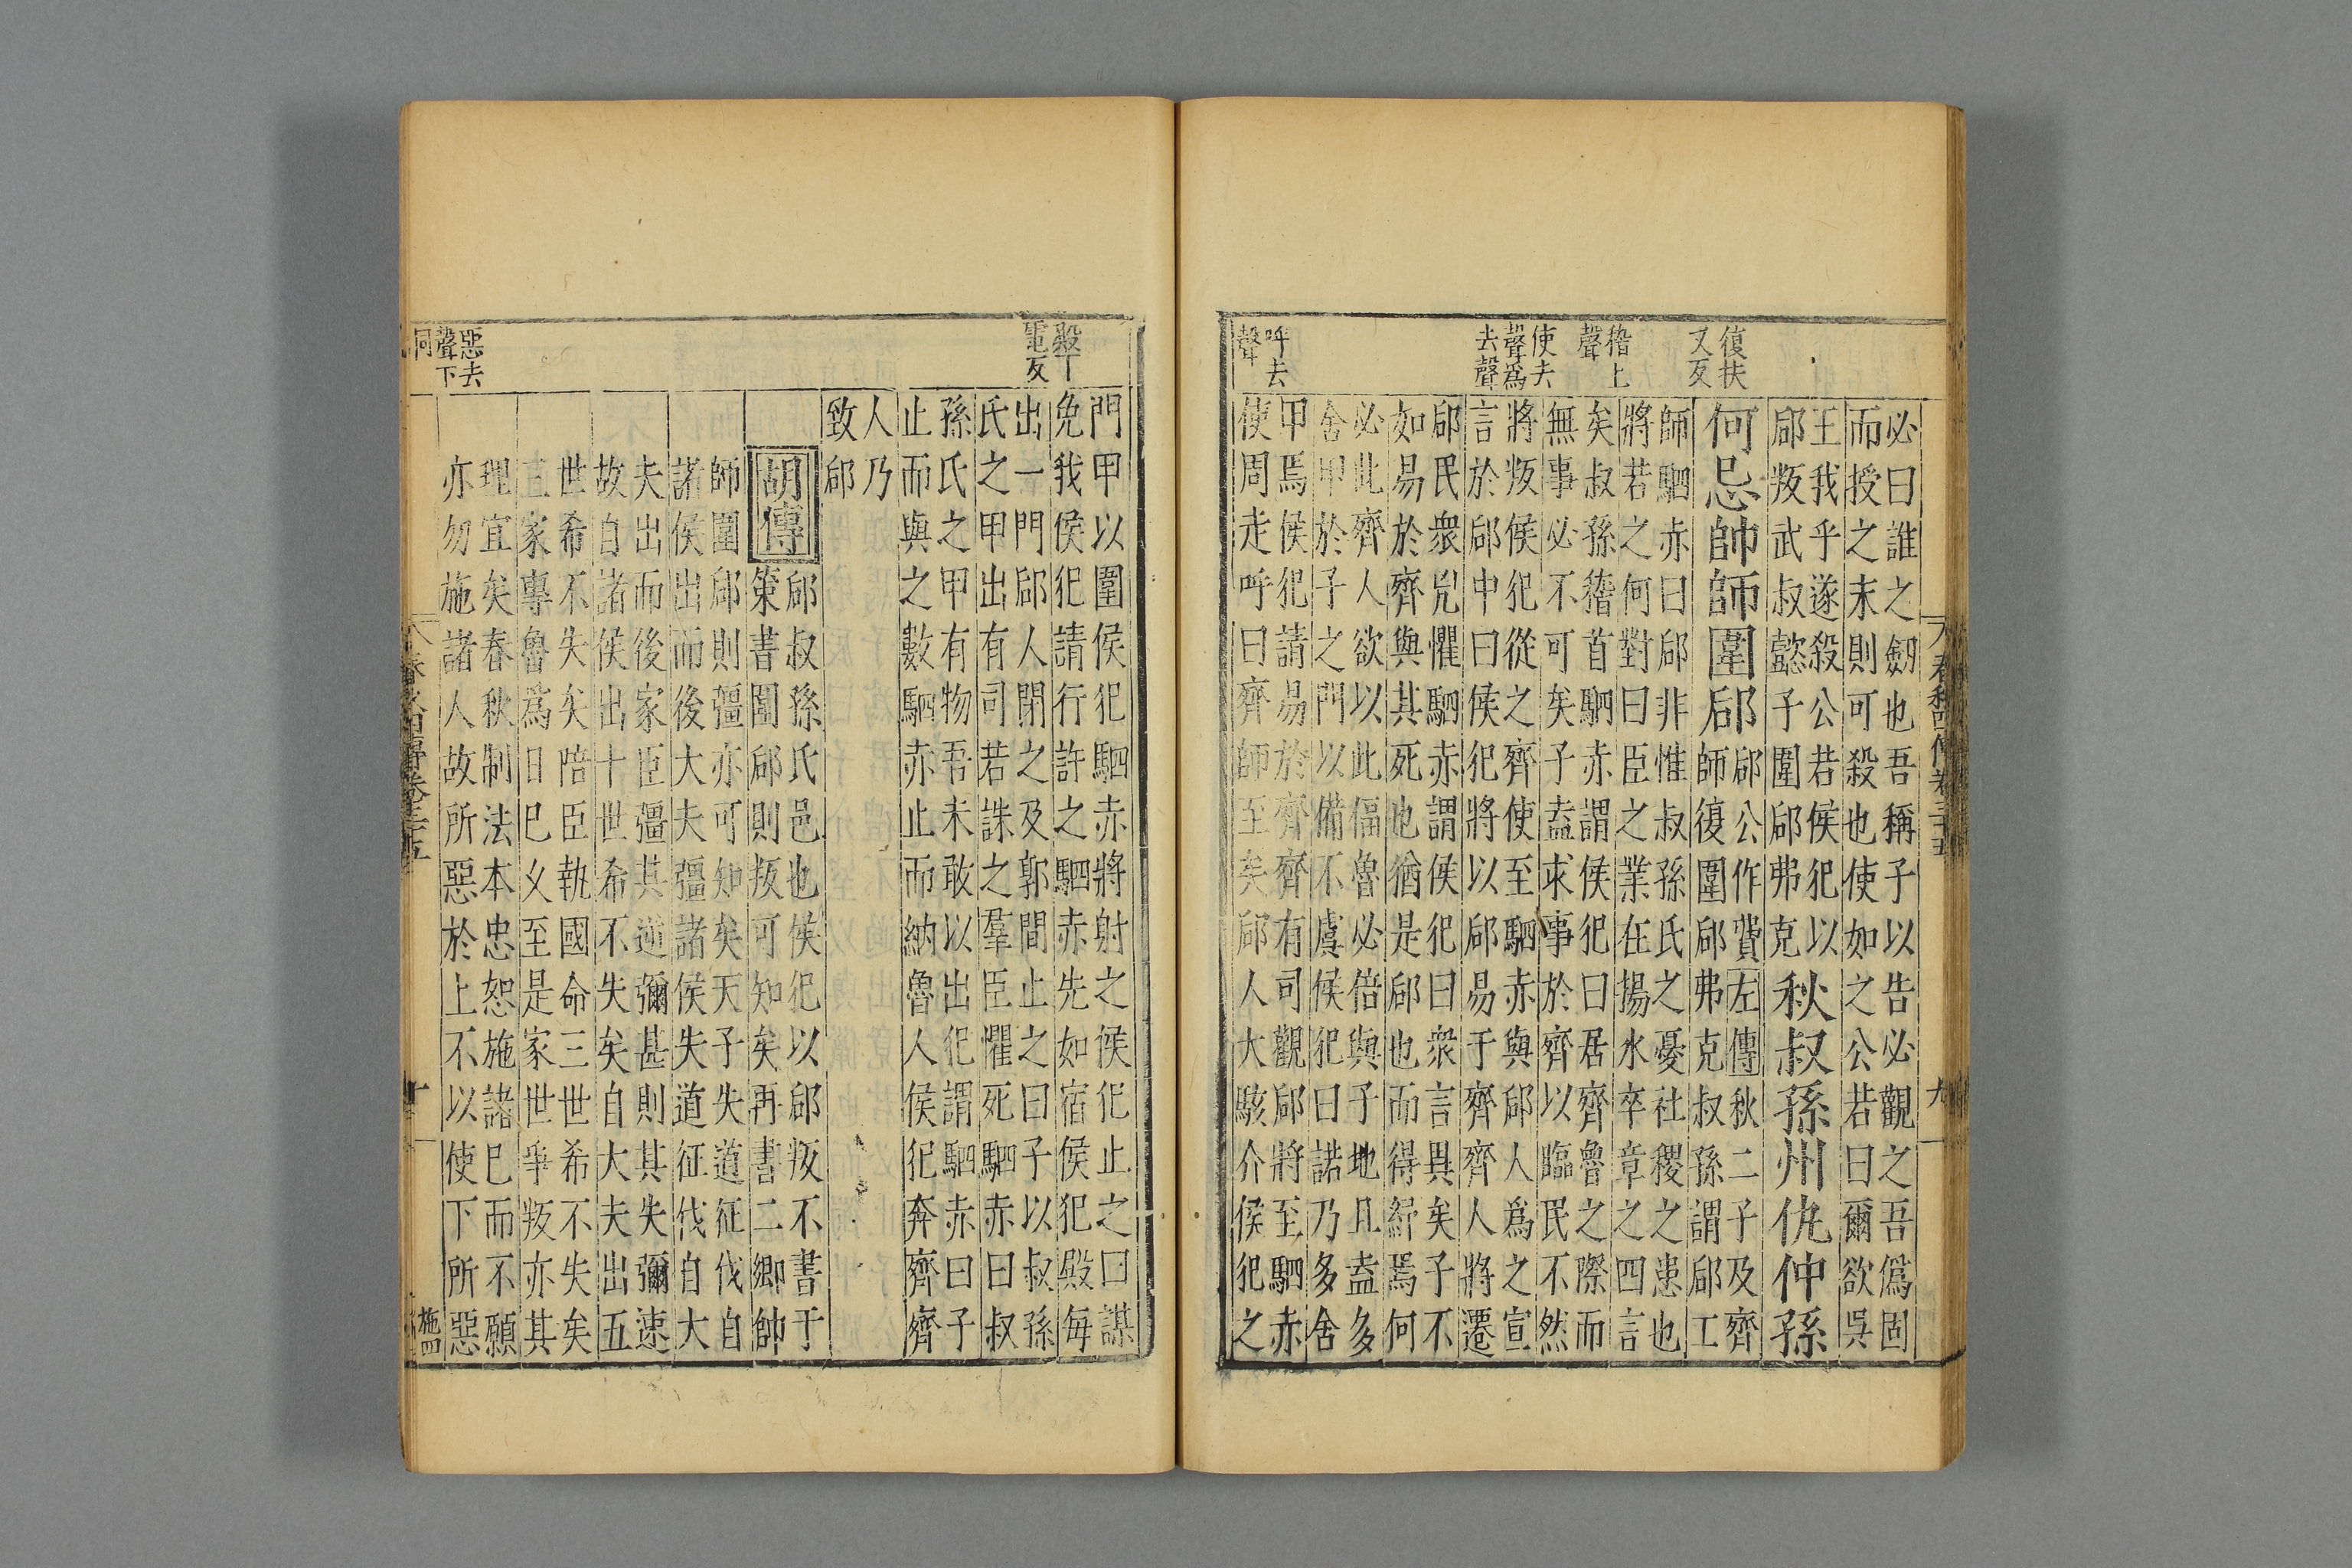 復扶
又反
稽上
聲
使去
聲爲
去聲
呼去
聲
必曰誰之劒也吾稱子以告必觀之吾僞固
而授之末則可殺也使如之公若曰爾欲吳
王我乎遂殺公若侯犯以
郈叛武叔懿子圍郈弗克
秋叔孫州仇仲孫
何忌帥師圍郈
郈公作費左傳秋二子及齊
師復圍郈弗克叔孫謂郈工
師駟赤曰郈非惟叔孫氏之憂社稷之患也
將若之何對曰臣之業在揚水卒章之四言
矣叔孫稽首駟赤謂侯犯曰居齊魯之際而
無事必不可矣子盍求事於齊以臨民不然
將叛侯犯從之齊使至駟赤與郈人爲之宣
言於郈中曰侯犯將以郈易于齊齊人將遷
郈民衆兇懼駟赤謂侯犯曰衆言異矣子不
如易於齊與其死也猶是郈也而得紓焉何
必此齊人欲以此偪魯必倍與子地且盍多
舍甲於子之門以備不虞侯犯曰諾乃多舍
甲焉侯犯請易於齊齊有司觀郈將至駟赤
使周走呼曰齊師至矣郈人大駭介侯犯之
春秋四傳卷三十五
九
殿丁
電反
惡去
聲下
同
門甲以圍侯犯駟赤將射之侯犯止之曰謀
免我侯犯請行許之駟赤先如宿侯犯殿每
出一門郈人閉之及郭門止之曰子以叔孫
氏之甲出有司若誅之羣臣懼死駟赤曰叔
孫氏之甲有物吾未敢以出犯謂駟赤曰子
止而與之數駟赤止而納魯人侯犯奔齊齊
人乃
致郈
胡傳
郈叔孫氏邑也侯犯以郈叛不書于
策書圍郈則叛可知矣再書二卿帥
師圍郈則彊亦可知矣天子失道征伐自
諸侯出而後大夫彊諸侯失道征伐自大
夫出而後家臣彊其逆彌甚則其失彌速
故自諸侯出十世希不失矣自大夫出五
世希不失矣陪臣執國命三世希不失矣
三家專魯爲日巳乆至是家世爭叛亦其
理宜矣春秋制法本忠恕施諸巳而不願
亦勿施諸人故所惡於上不以使下所惡
春秋四傳卷三十五
十
施四